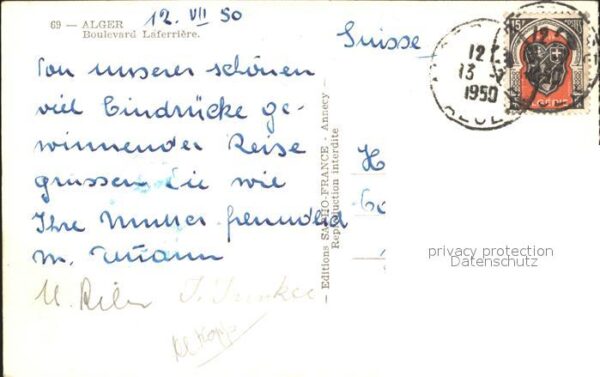 69 — ALGER
Boulevard Laferrière.
12. VII 50
Suisse
Von unserer schönen
viel Eindrücke ge-
winnender Reise
grüssen Sie wie
Ihre Mutter freundlich
M.
H
Editions SAPHO-FRANCE - Annecy
Reproduction interdite
12
13
1950
15
POSTES
ALGERIE
privacy protection
Datenschutz